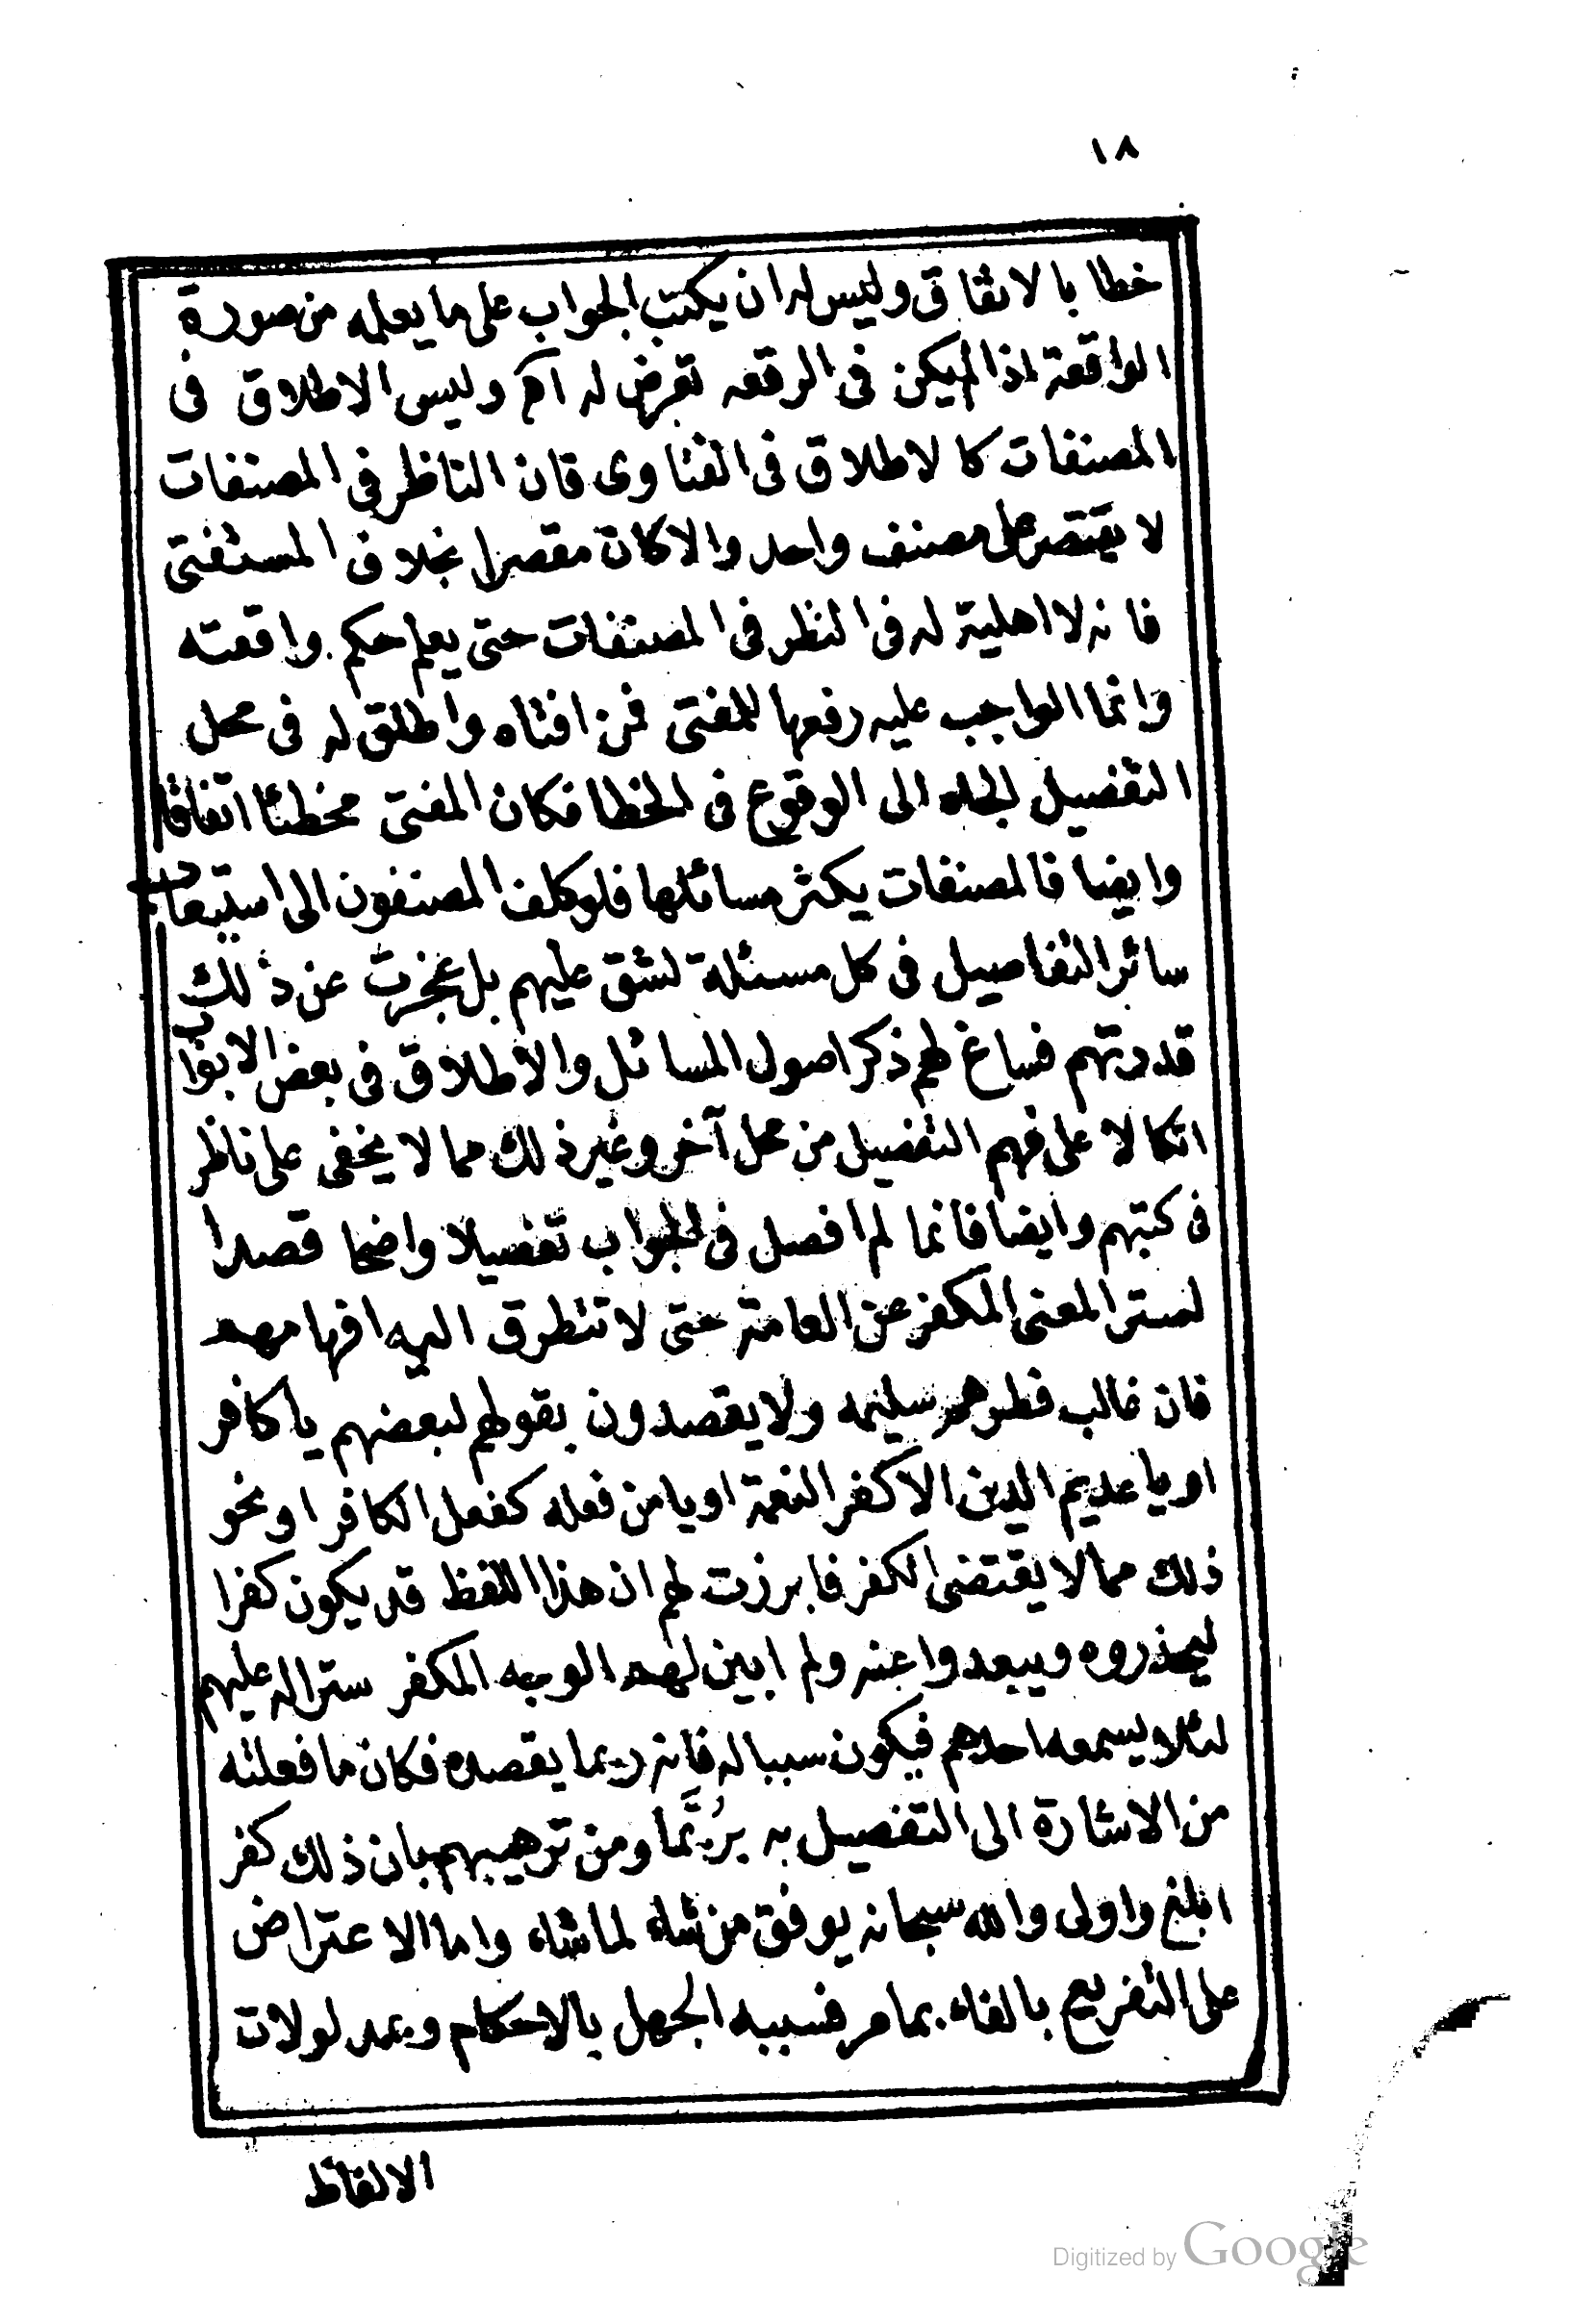 ١٨
خطا بالاتفاق وليس له ان يكتب الجواب على ما يعلمه من صورة
الواقعة اذا لم يكن فى الرقعه تعرض له آه وليس الاطلاق فى
المصنفات كالاطلاق فى الفتاوى فان الناظر فى المصنفات
لا يقتصر على مصنف واحد والا كان مقصرا بخلاف المستفتى
فانه لا اهلية له فى النظر فى المصنفات حتى يعلم حكم واقعته
وانما الواجب عليه رفعها للمفتى فمن افتاه واطلق له فى محل
التفصيل الجاه الى الوقوع فى الخطا فكان المفتى مخطئا اتفاقا
وايضا فالمصنفات يكثر مسائلها فلو كلف المصنفون الى استيعاب
سائر التفاصيل فى كل مسئلة لشق عليهم بل عجزت عن ذلك
قدرتهم فساغ لهم ذكر اصول المسائل والاطلاق فى بعض الابواب
اتكالا على فهم التفصيل من محل آخر وغير ذلك مما لا يخفى على ناظر
فى كتبهم وايضا فانما لم افصل فى الجواب تفصيلا واضحا قصدا
لستر المعنى المكفر عن العامة حتى لا تتطرق اليه افهامهم
فان غالب فطرهم سليمه ولا يقصدون بقولهم لبعضهم يا كافر
او يا عديم الدين الا كفر النعمة او يا من فعله كفعل الكافر او نحو
ذلك مما لا يقتضى الكفر فابرزت لهم ان هذا اللفظ قد يكون كفرا
ليحذروه ويبعدوا عنه ولم ابين لهم الوجه المكفر سترا له عليهم
لئلا يسمعه احدهم فيكون سببا له فانه ربما يقصده فكان ما فعلته
من الاشارة الى التفصيل به برُبَّما ومن ترهيبهم بان ذلك كفر
ابلغ واولى والله سبحانه يوفق من شاء لما شاء واما الاعتراض
على التفريع بالفاء بما مر فسببه الجهل بالاحكام وبمدلولات
الالفاظ
Digitized by Google